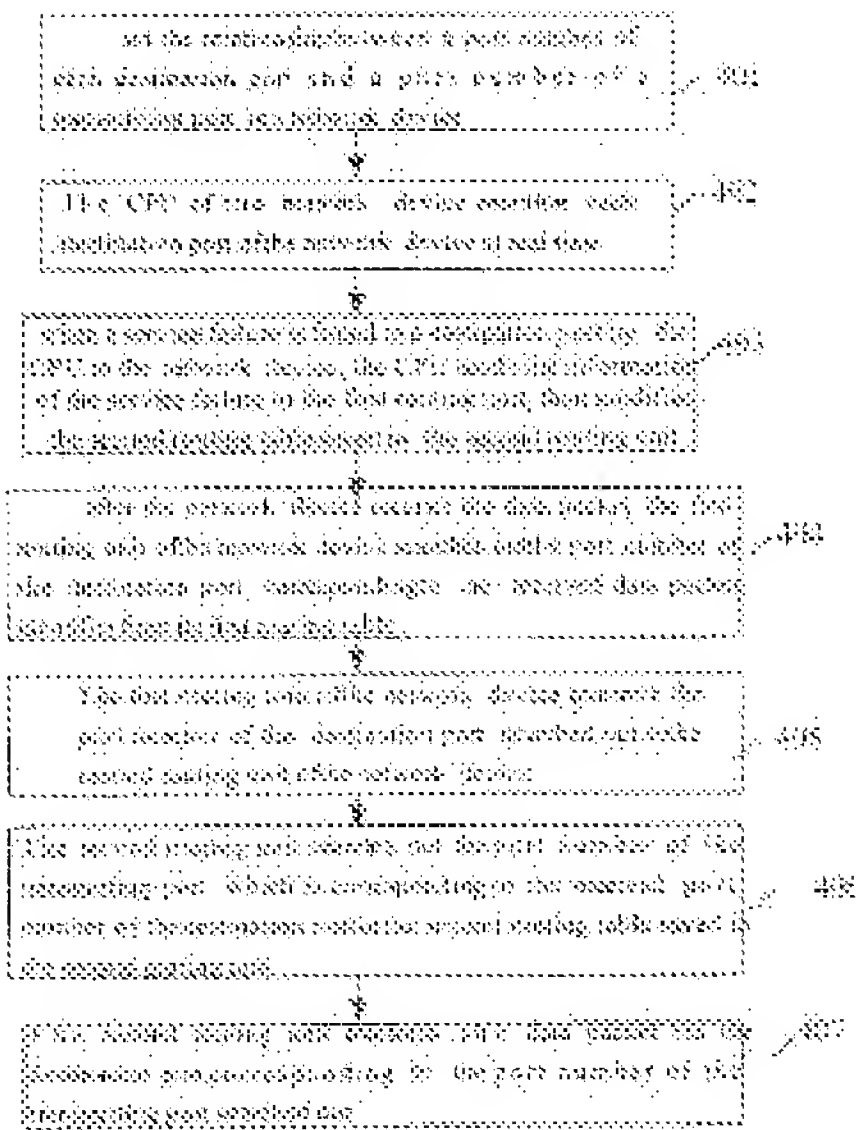 set the relationship between a port number of
each destination port and a port number of a
port in a network device
401
The CPU of the network device monitors each
destination port of the network device at real time
402
when a service failure is found in a destination port by the
CPU in the network device, the CPU sends the information
of the service failure to the first routing unit, then modifies
the second routing table in the second routing unit
403
after the network device receives the data packet, the first
routing unit of the network device searches out the port number of
the destination port corresponding to the received data packet
identifier from its first routing table
404
The first routing unit of the network device transmits the
port number of the destination port searched out to the
second routing unit of the network device
405
The second routing unit searches out the port number of the
port which is corresponding to the received port
number of the destination port in the second routing table stored in
the second routing unit
406
The second routing unit transmits the data packet to the
destination port corresponding to the port number of the
port searched out
407